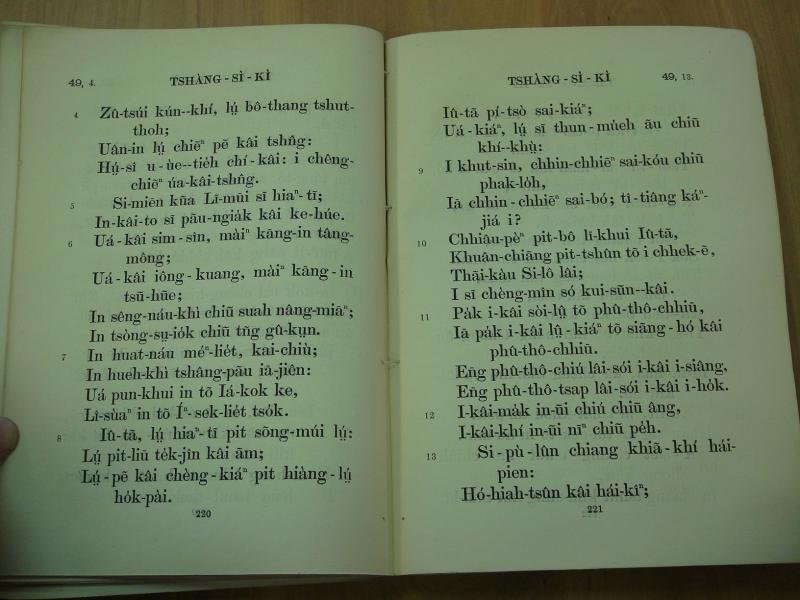 49, 4.
TSHÀNG-SÌ-KÌ
4 Zû-tsúi kún--khí, lṳ́ bô-thang tshut-
thoh;
Uân-in lṳ́ chiēⁿ pē kâi tshn̂g:
Hṳ́-sî u-ùe--tie̍h chí-kâi: i chêng-
chiēⁿ úa-kâi-tshn̂g.
5 Si-miēn kūa Lī-mūi sĩ hiaⁿ-tĩ;
In-kâi-to sĩ pāu-ngia̍k kâi ke-húe.
6 Uá-kâi sim-sîn, màiⁿ kāng-in tâng-
mông;
Uá-kâi iông-kuang, màiⁿ kāng-in
tsũ-hũe;
In sêng-náu-khì chiũ suah nâng-miāⁿ;
In tsòng-sṳ-io̍k chiũ tn̄g gû-kṳn.
7 In huat-náu méⁿ-lie̍t, kai-chiù;
In hueh-khì tshâng-pāu iā-jiên:
Uá pun-khui in tõ Iá-kok ke,
Lî-sùaⁿ in tõ Íⁿ-sek-lie̍t tso̍k.
8 Iû-tā, lṳ́ hiaⁿ-tĩ pit sōng-múi lṳ́:
Lṳ́ pit-liû te̍k-jîn kâi ām;
Lṳ́-pẽ kâi chèng-kiáⁿ pit hiàng-lṳ́
ho̍k-pài.
220
TSHÀNG-SÌ-KÌ
49, 13.
Iû-tā pí-tsò sai-kiáⁿ;
Uá-kiáⁿ, lṳ́ sĩ thun-mue̍h āu chiũ
khí--khṳ̀:
9 I khut-sin, chhin-chhiēⁿ sai-kóu chiũ
phak-lo̍h,
Iā chhin-chhiēⁿ sai-bó; tî-tiâng ká-
jiá i?
10 Chhiâu-pèⁿ pit-bô lī-khui Iû-tā,
Khuân-chiāng pit-tshûn tõ i chhek-ē,
Thāi-kàu Si-lô lâi;
I sĩ chèng-mîn só kui-sūn--kâi.
11 Pa̍k i-kâi sòi-lṳ̂ tõ phû-thô-chhiũ,
Iā pa̍k i-kâi lṳ̂-kiáⁿ tõ siāng-hó kâi
phû-thô-chhiũ.
Ēng phû-thô-chiú lâi-sói i-kâi i-siâng,
Ēng phû-thô-tsap lâi-sói i-kâi i-ho̍k.
12 I-kâi-ma̍k in-ūi chiú chiũ âng,
I-kâi-khí in-ūi nīⁿ chiũ pe̍h.
13 Si-pù-lûn chiang khiā-khí hái-
pien:
Hó-hiah-tsûn kâi hái-kîⁿ;
221